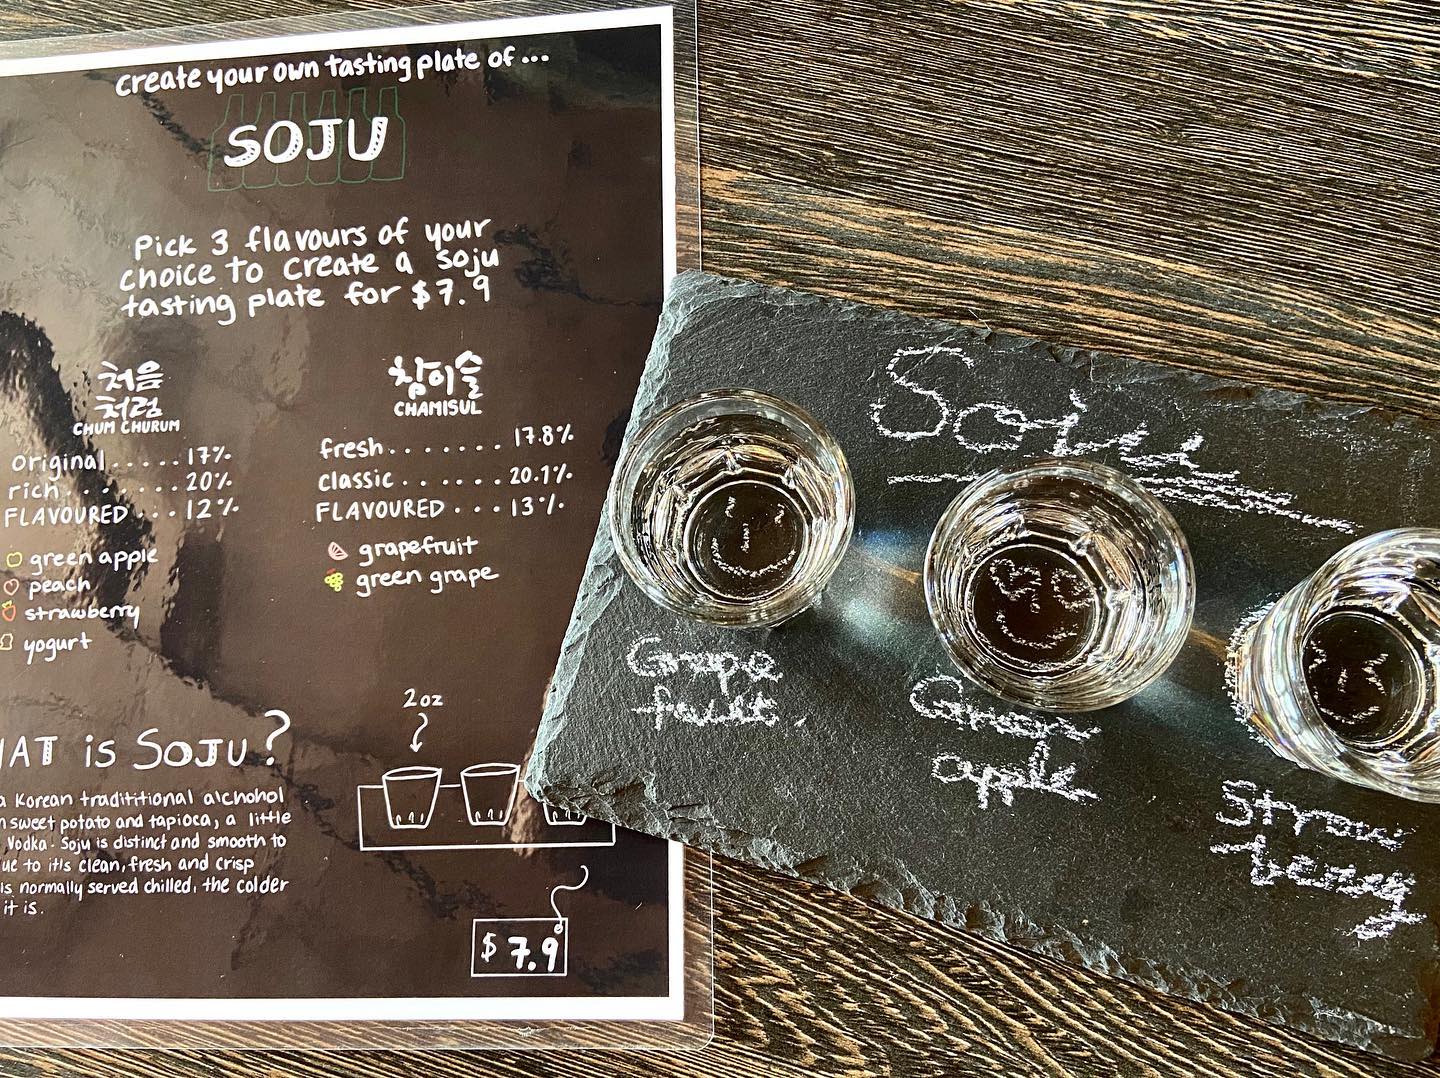 create your own tasting plate of...
SOJU
Pick 3 flavours of your
choice to create a soju
tasting plate for $7.9
처음
처럼
CHUM CHURUM
original.....17%
rich.......20%
FLAVOURED...12%
green apple
peach
strawberry
yogurt
참이슬
CHAMISUL
fresh.......17.8%
classic......20.1%
FLAVOURED...13%
grapefruit
green grape
2oz
IS SOJU?
a Korean tradititional alchohol
sweet potato and tapioca, a little
Vodka. Soju is distinct and smooth to
to it's clean, fresh and crisp
is normally served chilled, the colder
it is.
$7.9
Soju
Grape
fruit.
Green
apple
Straw
berry